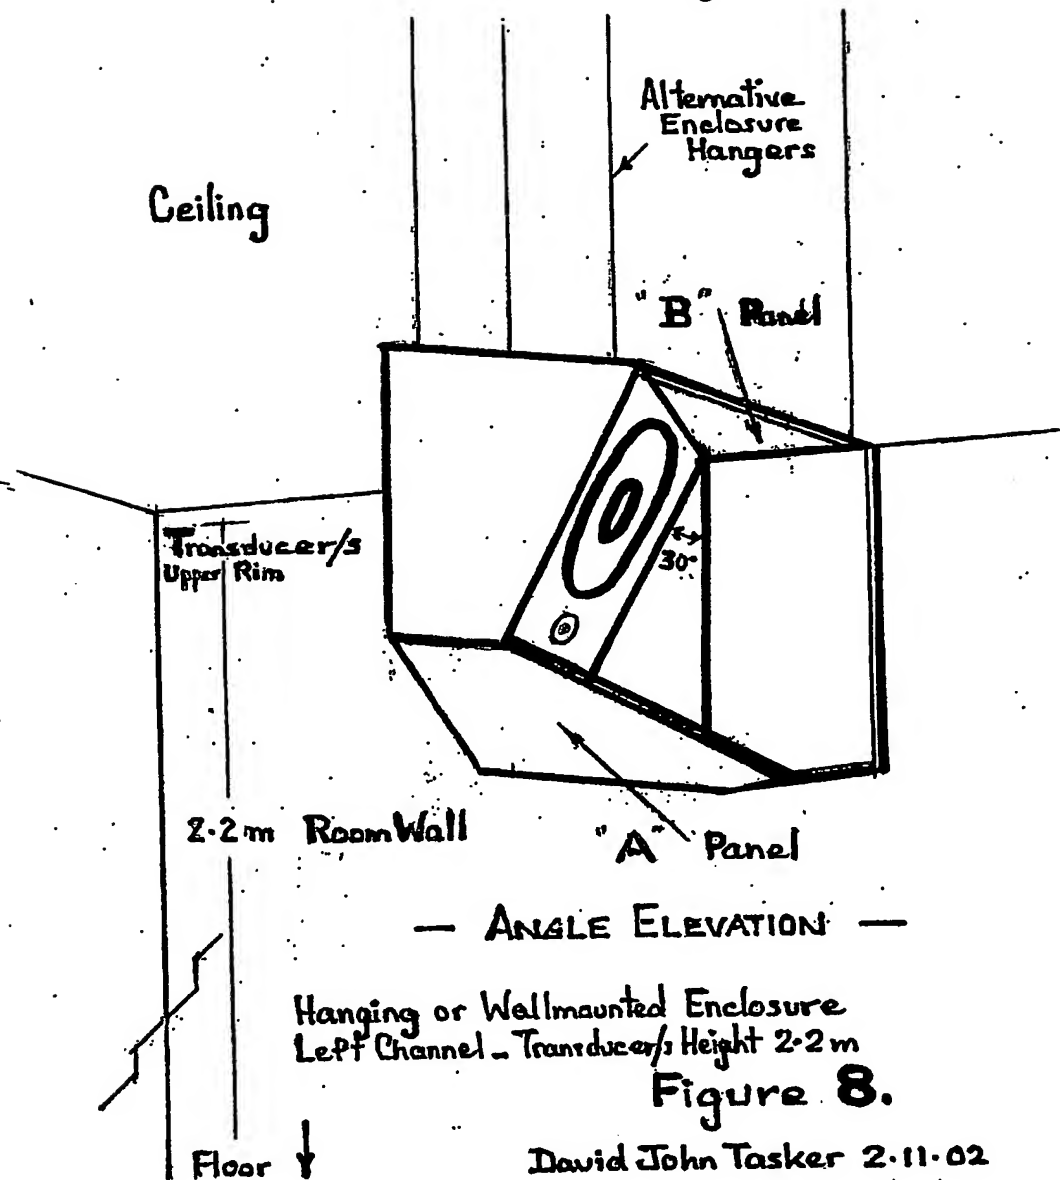 Alternative
Enclosure
Hangers
Ceiling
"B" Panel
Transducer/s
Upper Rim
30°
2·2m Room Wall
"A" Panel
— ANGLE ELEVATION —
Hanging or Wallmounted Enclosure
Left Channel - Transducer/s Height 2·2m
Figure 8.
Floor
David John Tasker 2·11·02